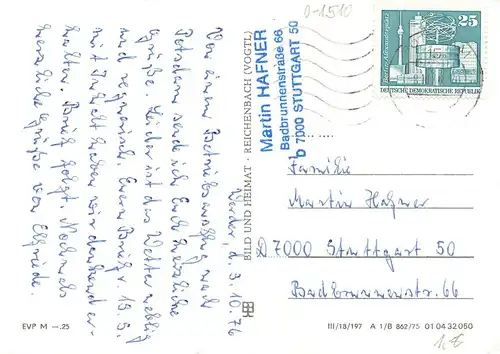 Werder, d. 3.10.76
Von einem Betriebsausflug nach
Potsdam send ich Euch herzliche
Grüße. Leider ist das Wetter neblig
und regnerisch. Euren Brief v. 19.9.
mit haben wir dankend er-
halten. Brief folgt. Nochmals
herzliche Grüße von Elfriede.
BILD UND HEIMAT · REICHENBACH (VOGTL)
Martin HAFNER
Badbrunnenstraße 66
7000 STUTTGART 50
0-1510
25
DEUTSCHE DEMOKRATISCHE REPUBLIK
Familie
Martin Hafner
D 7000 Stuttgart 50
Badbrunnenstr. 66
EVP M —.25
III/18/197 A 1/B 862/75 01 04 32 050
1,€